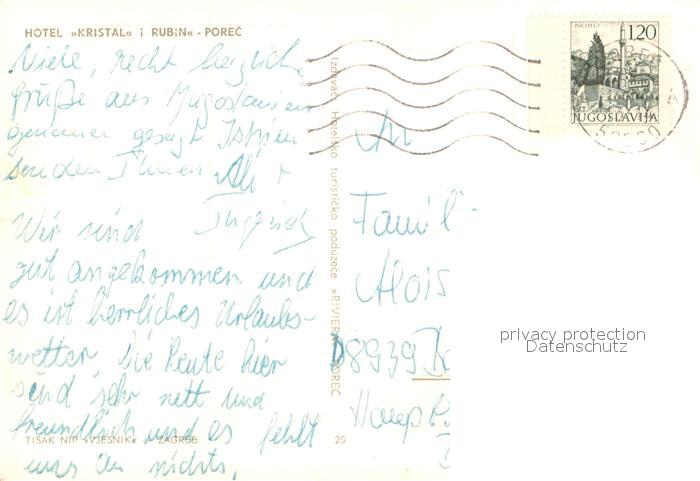 HOTEL »KRISTAL« i RUBIN« - POREČ
Viele, recht herzliche
Grüße aus Jugoslawien
genauer gesagt Istrien
senden Ihnen
Wir sind
gut angekommen und
es ist herrliches Urlaubs-
wetter. Die Leute hier
sind sehr nett und
freundlich und es fehlt
uns an nichts,
TISAK NIP »VJESNIK« - ZAGREB
25
Izdavač: Hotelsko turističko poduzeće »RIVIERA« POREČ
POČITELJ
1.20
JUGOSLAVIJA
An
Famil
Alois
D8939
Haupt
privacy protection
Datenschutz